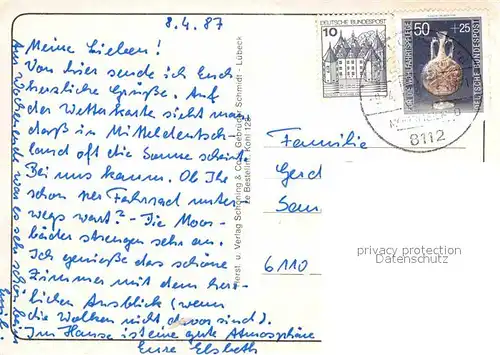 8.4.87
Meine Lieben!
Von hier sende ich Euch
herzliche Grüße. Auf
der Wetterkarte sieht man
daß in Mitteldeutsch-
land oft die Sonne scheint
Bei uns kaum. Ob Ihr
schon per Fahrrad unter-
wegs wart? - Die Moor-
bäder strengen sehr an.
Ich genieße das schöne
Zimmer mit dem herr-
lichen Ausblick (wenn
die Wolken nicht davor sind).
Im Hause ist eine gute Atmosphäre
Eure Elsbeth
Am Wochenende war es sehr schön bei
Herst. u. Verlag Schöning & Co. Gebrüder Schmidt - Lübeck
Bestellnr. Kohl 122
10
DEUTSCHE BUNDESPOST
50 + 25
FÜR DIE WOHLFAHRTSPFLEGE
DEUTSCHE BUNDESPOST
8112
Familie
Gerd
6110
privacy protection
Datenschutz